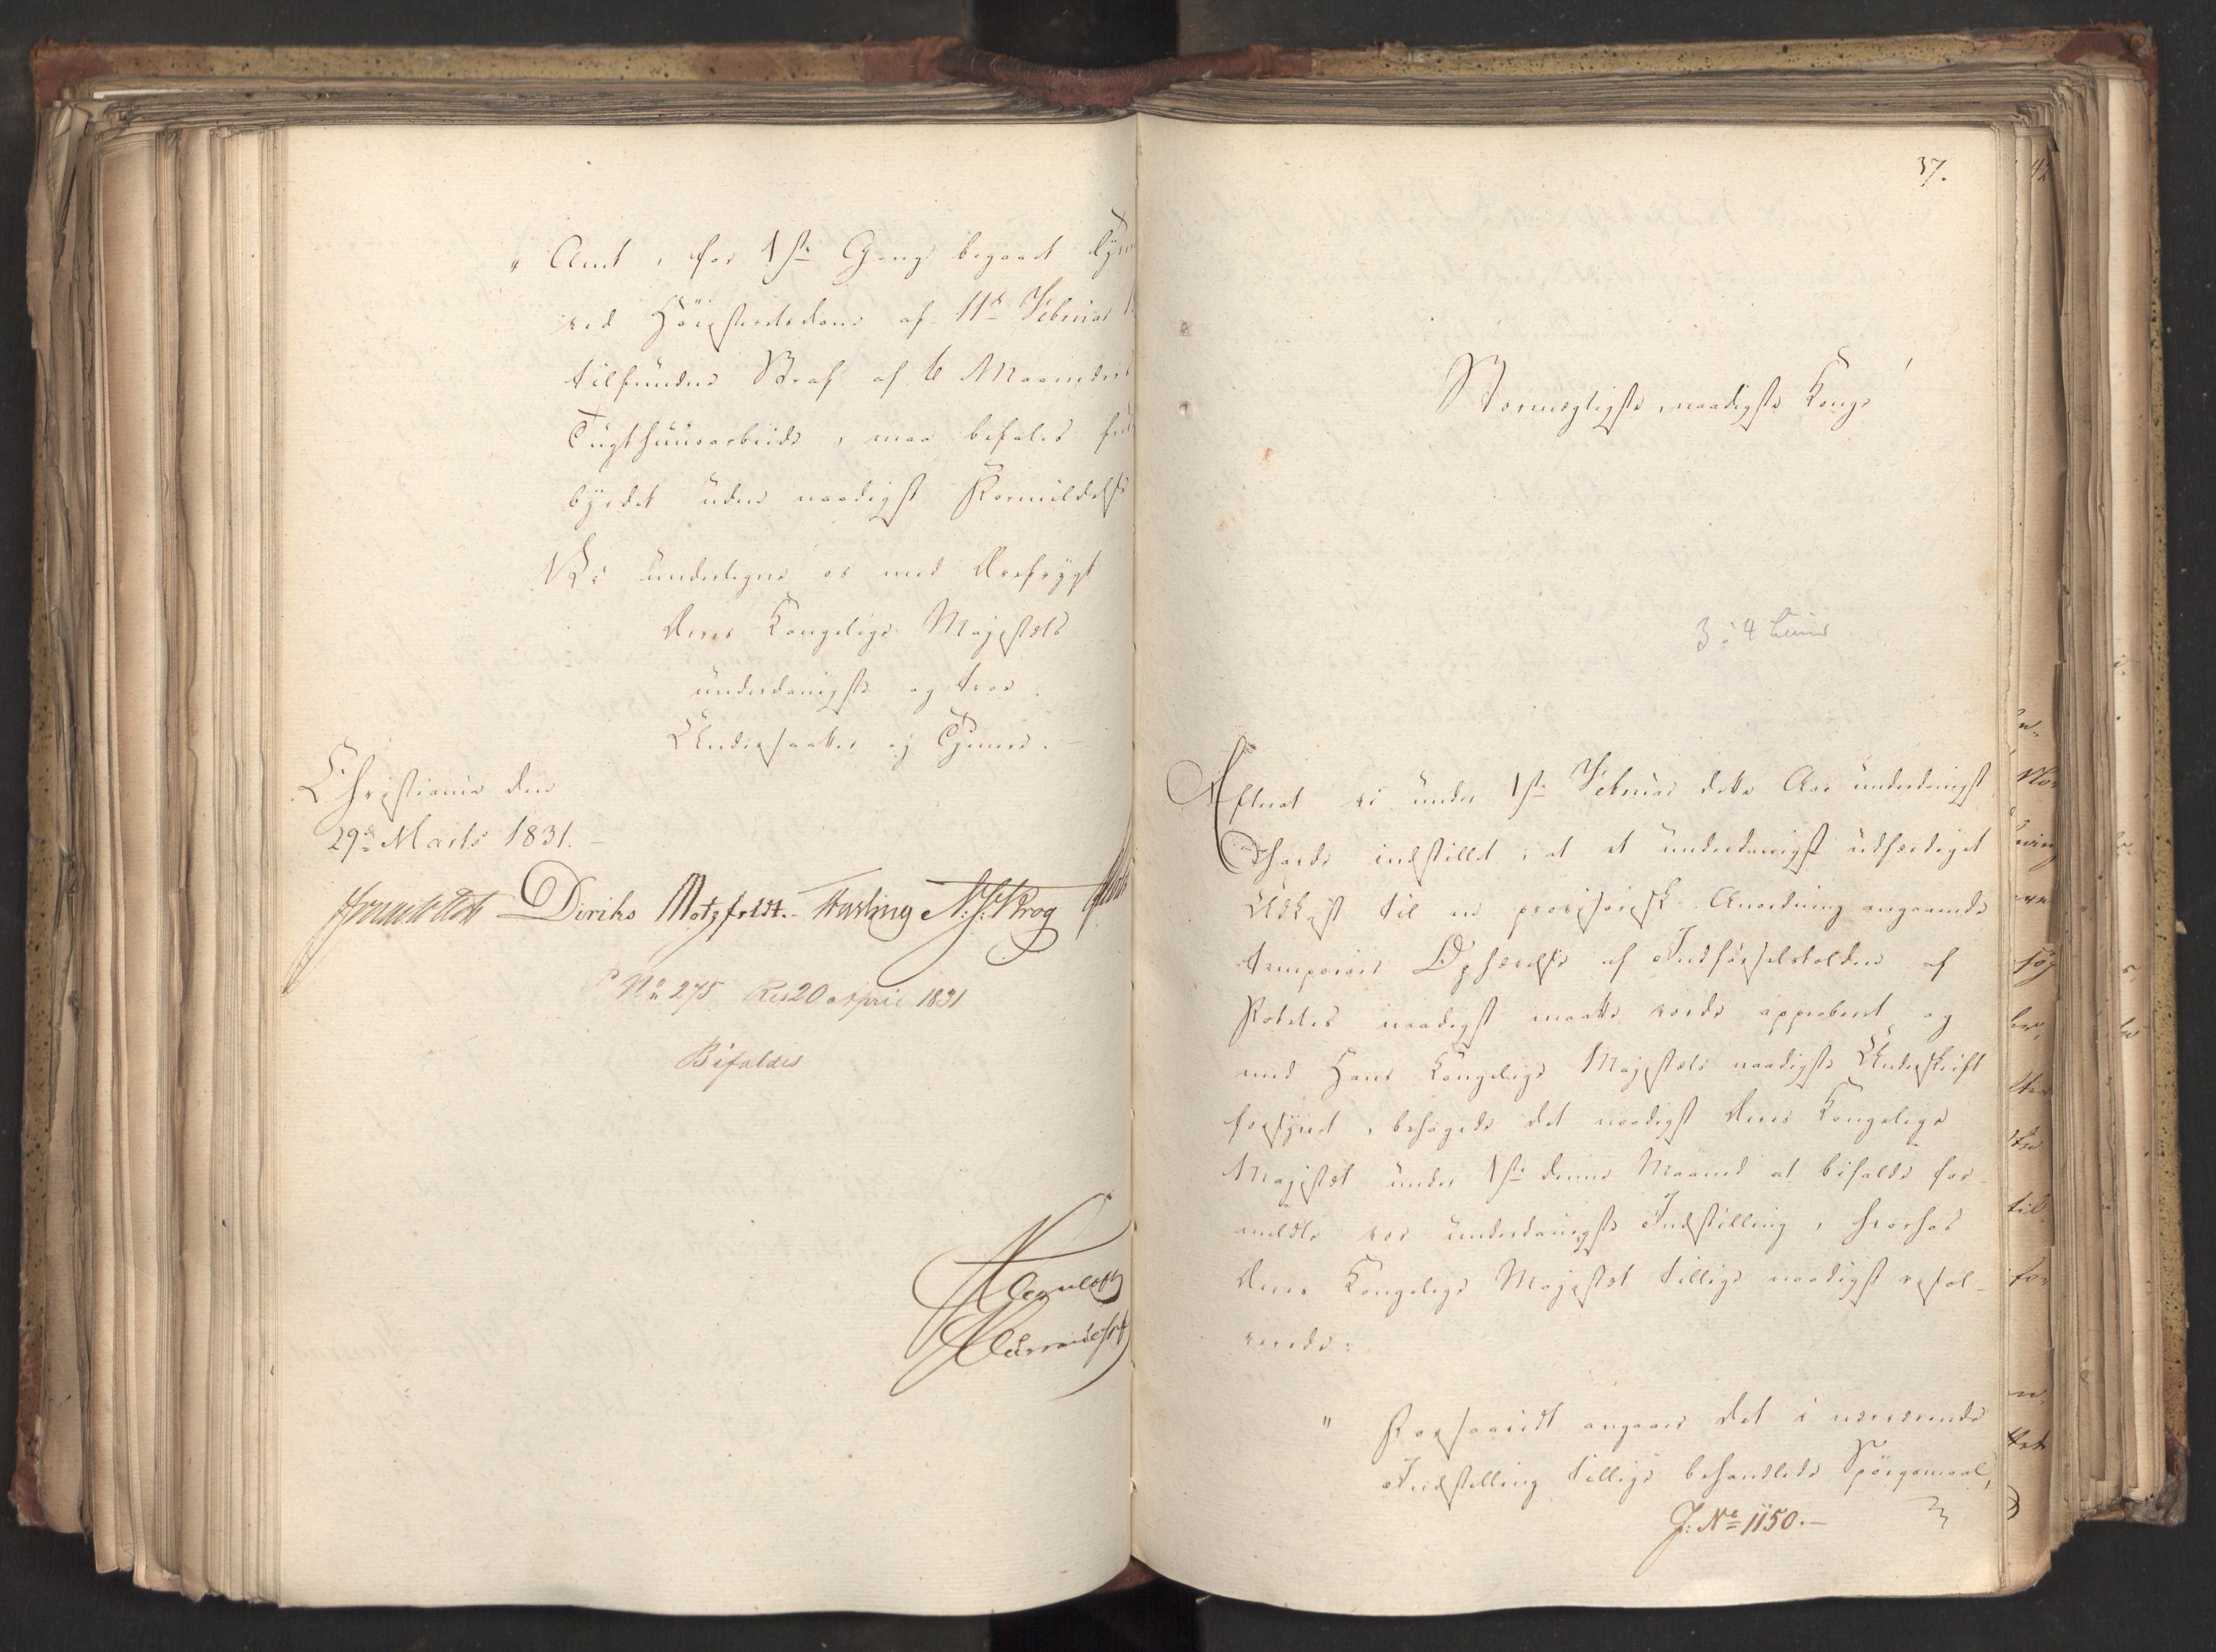 " Amt, for 1ste Gang begaaet Tyv
ved Høiesteretsdom af 11te Februar
tilfunden Straf af 6 Maaneders
Tugthuusarbeide, maa befales fuld
byrdet uden naadigst Formildelse
Vi undertegne os med Ærefrygt
Deres Kongelige Majestæts
underdanigste og troe
Undersaatter og Tjenere. —
Christiania den
29de Marts 1831. —
Diriks Motzfeldt. N: J: Krog
No 275 Res 20 April 1831
Bifaldes
37.
Stormægtigste, naadigste Konge!
3 à 4
Efterat vi under 1ste Februar dette Aar underdanigst
havde indstillet, at et underdanigst udfærdiget
Udkast til en provisorisk Anordning angaaende
temporair Ophævelse af Indførselstolden af
Poteter naadigst maatte vorde approberet og
med Hans Kongelige Majestæts naadigste Underskrift
forsynet, behagede det naadigst Deres Kongelige
Majestæt under 1ste denne Maaned at bifalde for-
meldte vor underdanigste Indstilling, hvorhos
Deres Kongelige Majestæt tillige naadigst resol-
verede:
" Forsaavidt angaaer det i nærværende
Indstilling tillige behandlede Spørgsmaal,
J: No 1150. —